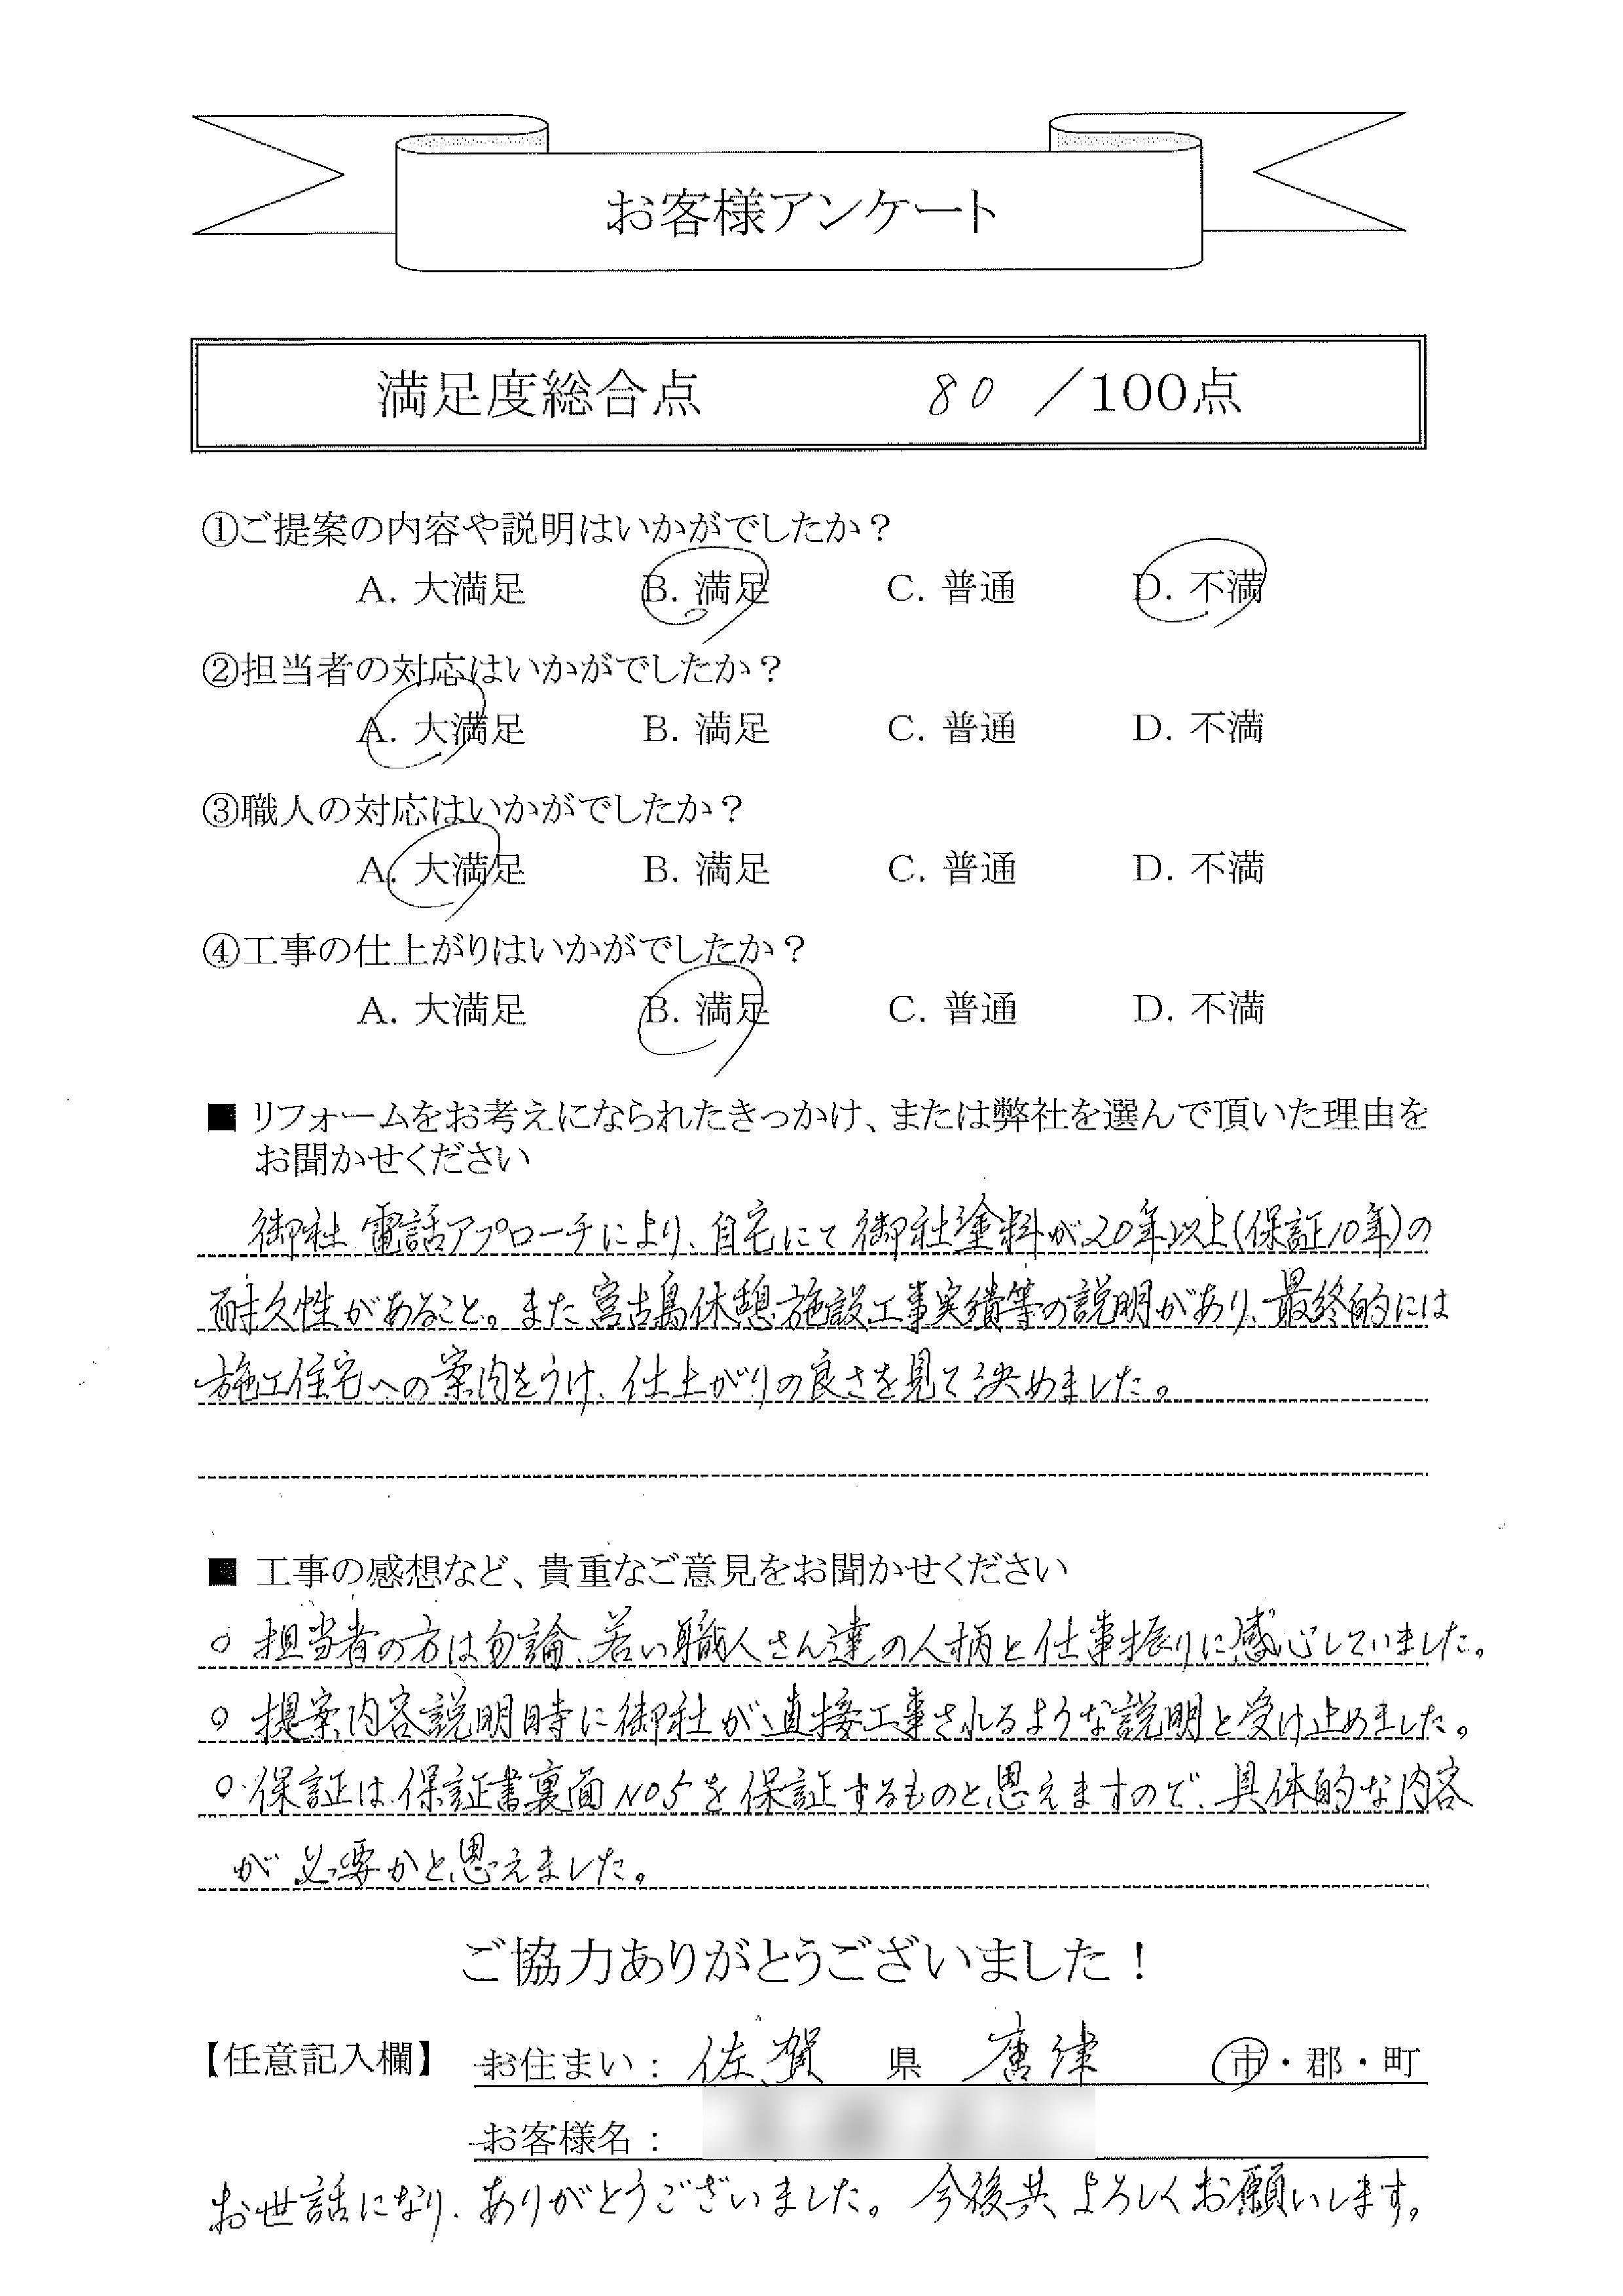 お客様アンケート
満足度総合点 80 /100点
①ご提案の内容や説明はいかがでしたか？
A. 大満足 B. 満足 C. 普通 D. 不満
②担当者の対応はいかがでしたか？
A. 大満足 B. 満足 C. 普通 D. 不満
③職人の対応はいかがでしたか？
A. 大満足 B. 満足 C. 普通 D. 不満
④工事の仕上がりはいかがでしたか？
A. 大満足 B. 満足 C. 普通 D. 不満
■ リフォームをお考えになられたきっかけ、または弊社を選んで頂いた理由を
お聞かせください
御社、電話アプローチにより、自宅にて御社塗料が20年以上(保証10年)の
耐久性があること。また宮古島休憩施設工事実績等の説明があり、最終的には
施工住宅への案内をうけ、仕上がりの良さを見て決めました。
■ 工事の感想など、貴重なご意見をお聞かせください
○ 担当者の方は勿論、若い職人さん達の人柄と仕事振りに感心していました。
○ 提案内容説明時に御社が直接工事されるような説明と受け止めました。
○ 保証は、保証書裏面NO5を保証するものと思えますので、具体的な内容
が必要かと思えました。
ご協力ありがとうございました！
【任意記入欄】 お住まい： 佐賀 県 唐津 市・郡・町
お客様名：
お世話になり、ありがとうございました。今後共よろしくお願いします。